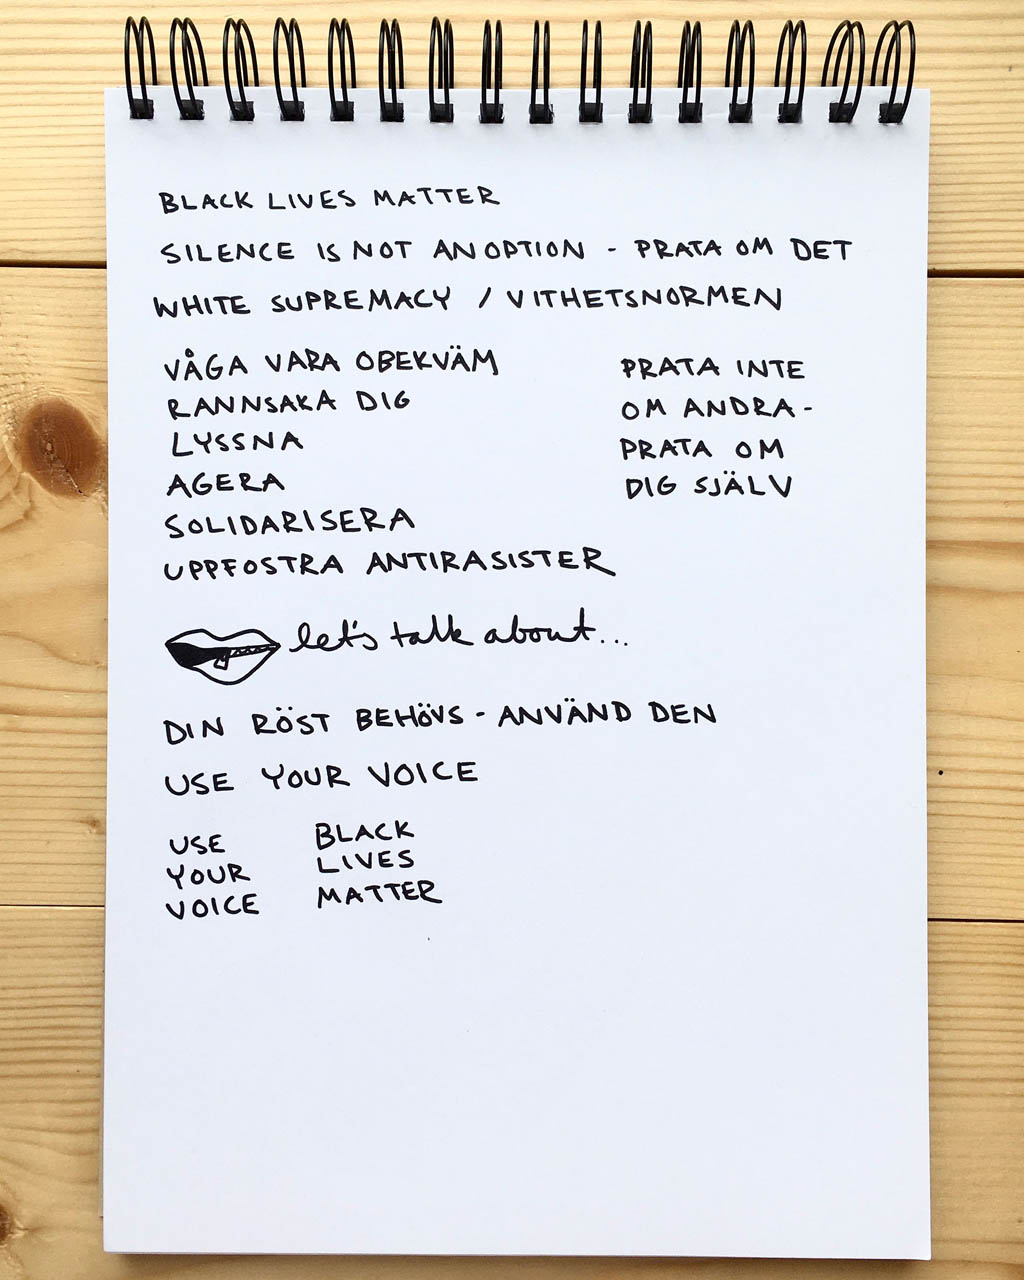 BLACK LIVES MATTER
SILENCE IS NOT AN OPTION - PRATA OM DET
WHITE SUPREMACY / VITHETSNORMEN
VÅGA VARA OBEKVÄM
RANNSAKA DIG
LYSSNA
AGERA
SOLIDARISERA
UPPFOSTRA ANTIRASISTER
PRATA INTE
OM ANDRA -
PRATA OM
DIG SJÄLV
let's talk about...
DIN RÖST BEHÖVS - ANVÄND DEN
USE YOUR VOICE
USE
YOUR
VOICE
BLACK
LIVES
MATTER